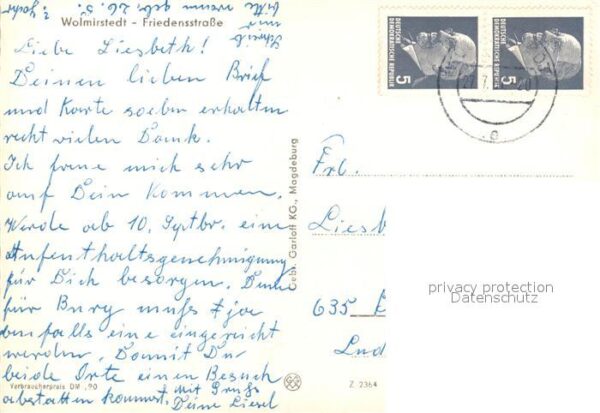 Schreib mir
bitte wann geb. 26. 5. ? Jahr
Wolmirstedt - Friedensstraße
Liebe Liesbeth!
Deinen lieben Brief
und Karte soeben erhalten
recht vielen Dank.
Ich freue mich sehr
auf Dein Kommen.
Werde ab 10. Septbr. eine
Aufenthaltsgenehmigung
für Dich besorgen. Denn
für Burg muß
enfalls eine eingereicht
werden. Damit Du
beide Orte einen Besuch
abstatten kannst. Mit Gruß
Deine Liesel
Verbraucherpreis DM -,90
Gebr. Garloff KG., Magdeburg
Z 2364
DEUTSCHE
DEMOKRATISCHE
REPUBLIK
5
DEUTSCHE
DEMOKRATISCHE REPUBLIK
5
Frl.
Liesb
635
Lud
privacy protection
Datenschutz